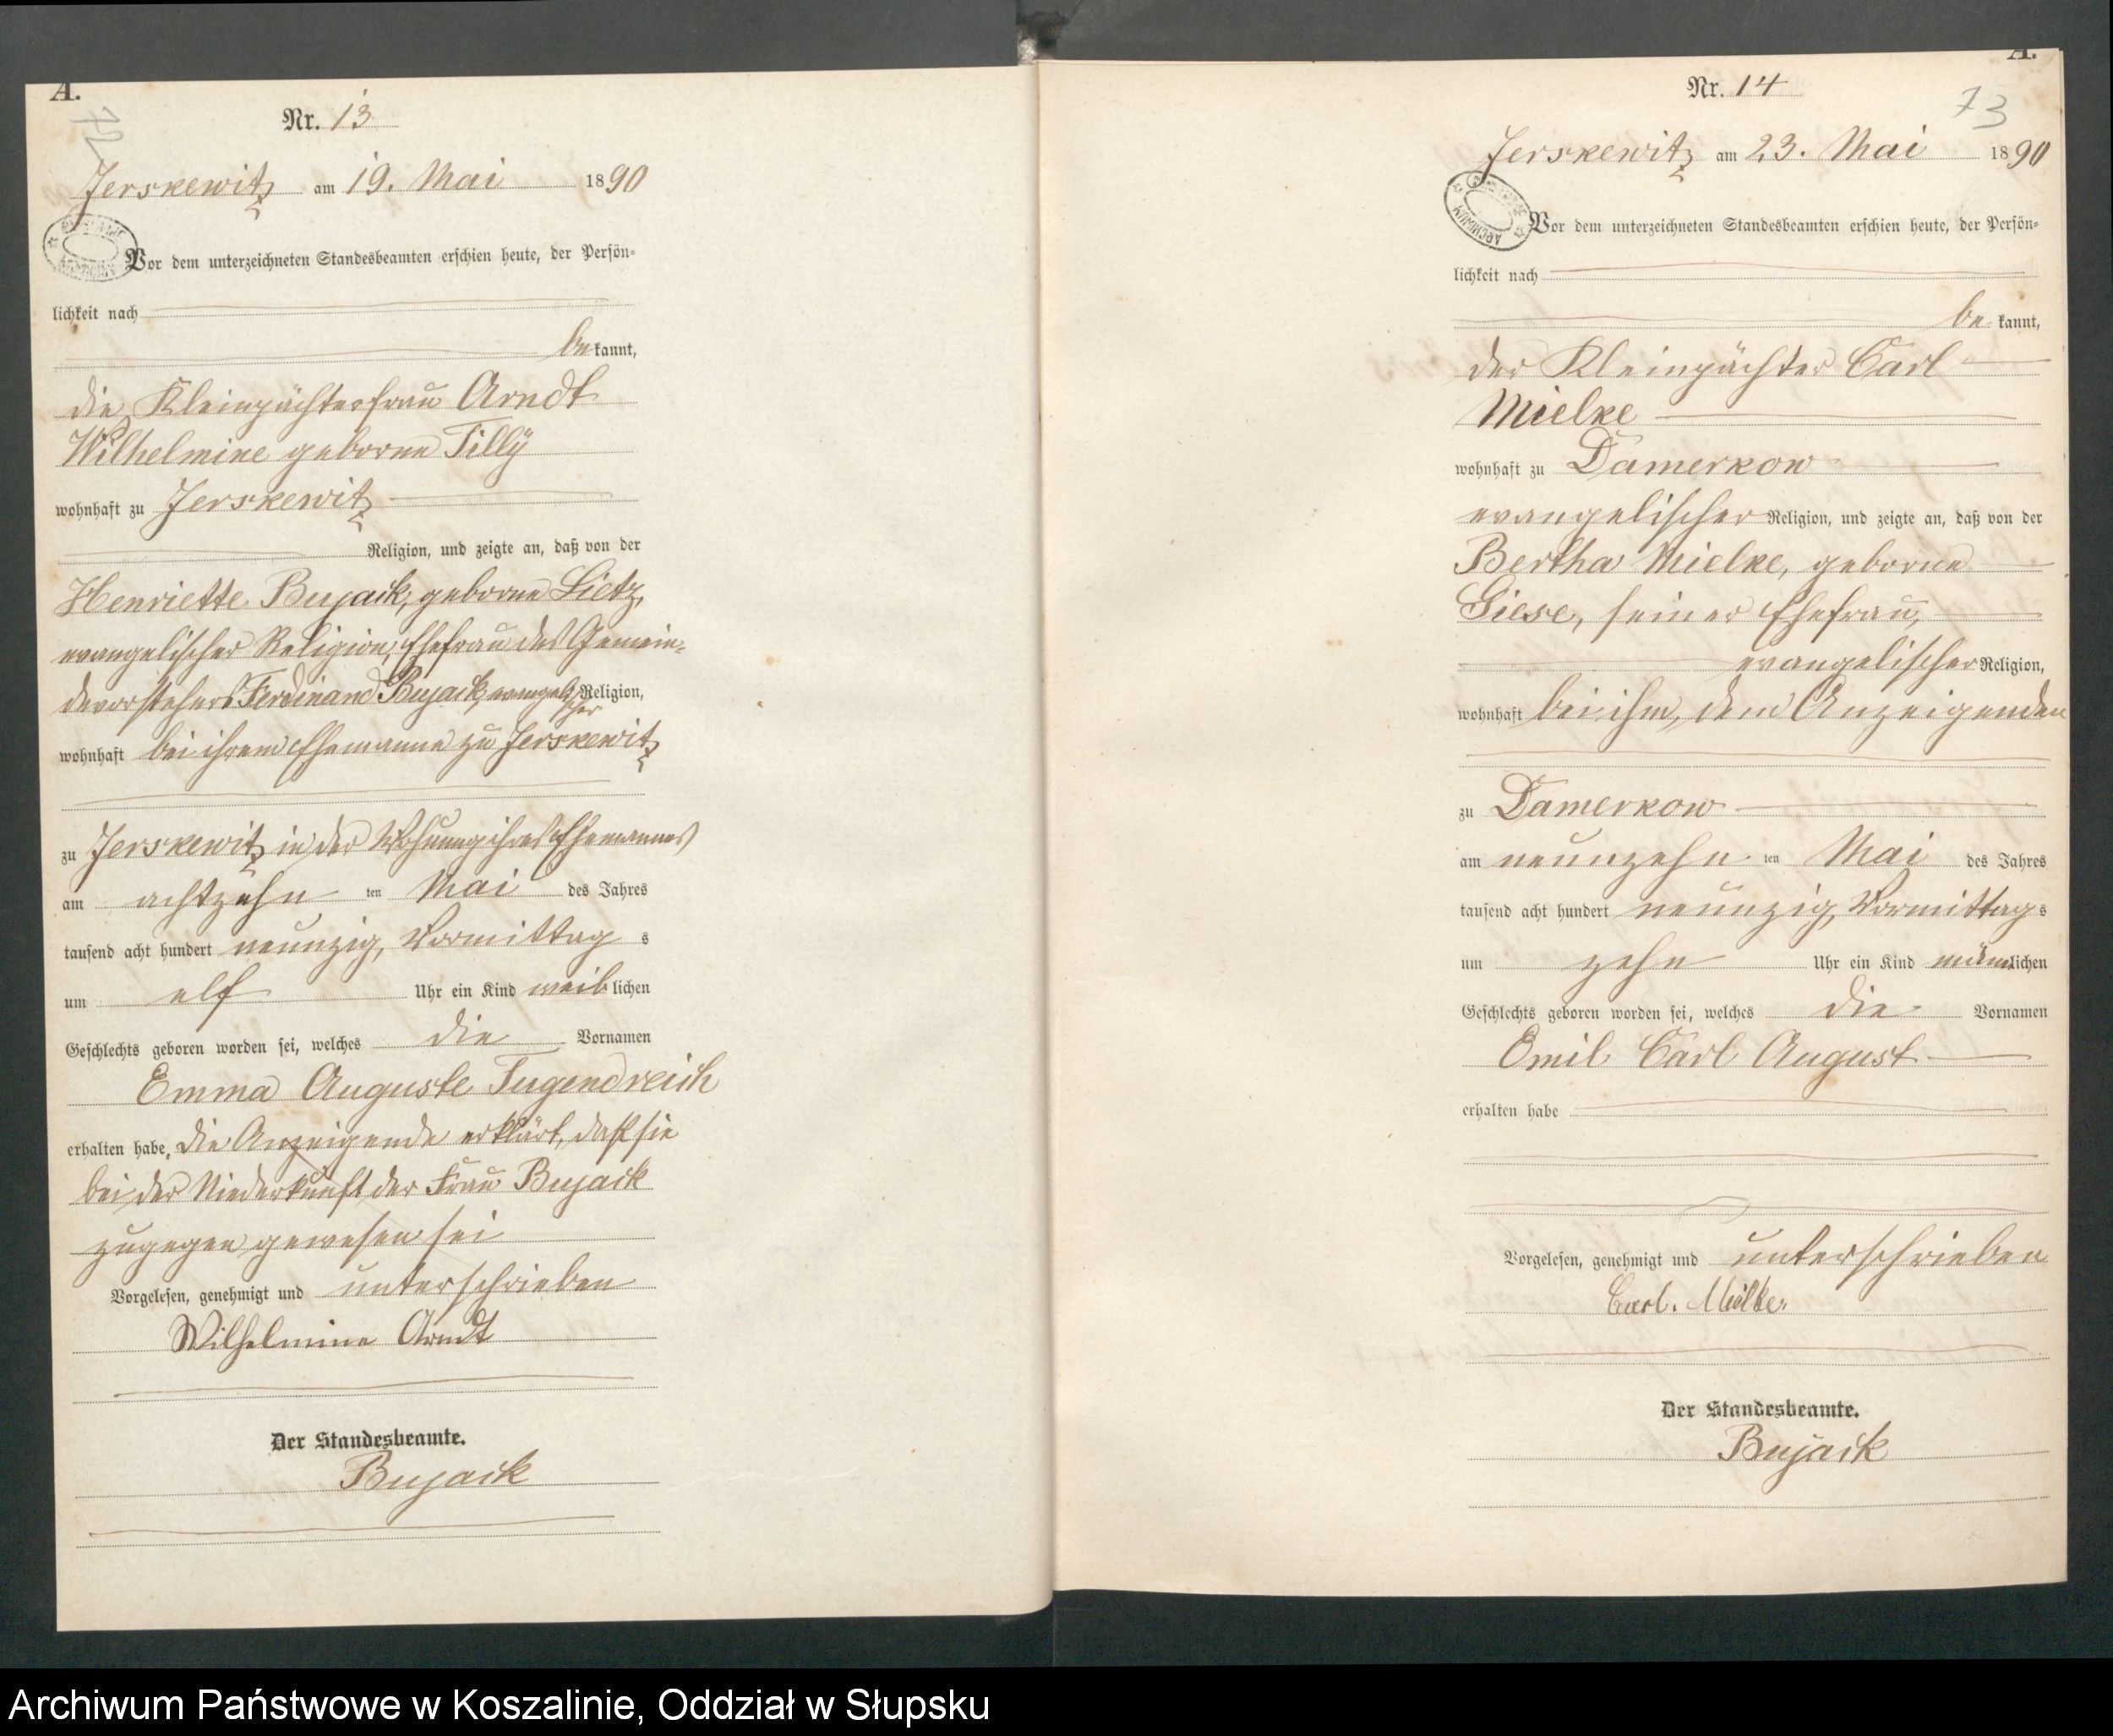 A.
72
Nr. 13
Jerskewitz am 19. Mai 1890
Vor dem unterzeichneten Standesbeamten erschien heute, der Persön-
lichkeit nach
be kannt,
die Kleinpächterfrau Arndt
Wilhelmine geborne Tilly
wohnhaft zu Jerskewitz
Religion, und zeigte an, daß von der
Henriette Bujack, geborne Lietz,
evangelischer Religion, Ehefrau des Gemein-
devorstehers Ferdinand Bujack, evangelischer Religion,
wohnhaft bei ihrem Ehemanne zu Jerskewitz
zu Jerskewitz in der Wohnung ihres Ehemannes
am achtzehn ten Mai des Jahres
tausend acht hundert neunzig, Vormittag s
um elf Uhr ein Kind weib lichen
Geschlechts geboren worden sei, welches die Vornamen
Emma Auguste Tugendreich
erhalten habe, die Anzeigende erklärt, daß sie
bei der Niederkunft der Frau Bujack
zugegen gewesen sei
Vorgelesen, genehmigt und unterschrieben
Wilhelmine Arndt
Der Standesbeamte.
Bujack
A.
73
Nr. 14
Jerskewitz am 23. Mai 1890
ARCHIWUM
Vor dem unterzeichneten Standesbeamten erschien heute, der Persön-
lichkeit nach
be kannt,
der Kleinpächter Carl
Mielke
wohnhaft zu Damerkow
evangelischer Religion, und zeigte an, daß von der
Bertha Mielke, geborne
Giese, seiner Ehefrau,
evangelischer Religion,
wohnhaft bei ihm, dem Anzeigenden
zu Damerkow
am neunzehn ten Mai des Jahres
tausend acht hundert neunzig, Vormittag s
um zehn Uhr ein Kind männlichen
Geschlechts geboren worden sei, welches die Vornamen
Emil Carl August
erhalten habe
Vorgelesen, genehmigt und unterschrieben
Carl. Mielke.
Der Standesbeamte.
Bujack
Archiwum Państwowe w Koszalinie, Oddział w Słupsku